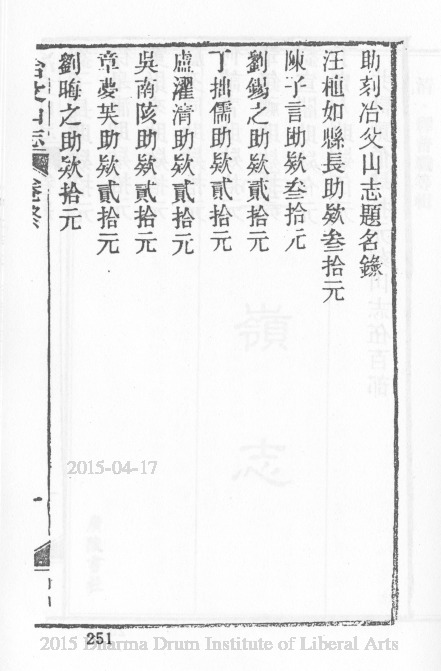 助刻冶父山志題名錄
汪植如縣長助欵叁拾元
陳子言助欵叁拾元
劉錫之助欵貳拾元
丁拙儒助欵貳拾元
盧濯清助欵貳拾元
吳南陔助欵貳拾元
章夢芙助欵貳拾元
劉晦之助欵拾元
冶父山志 卷終
2015-04-17
251
2015 Dharma Drum Institute of Liberal Arts